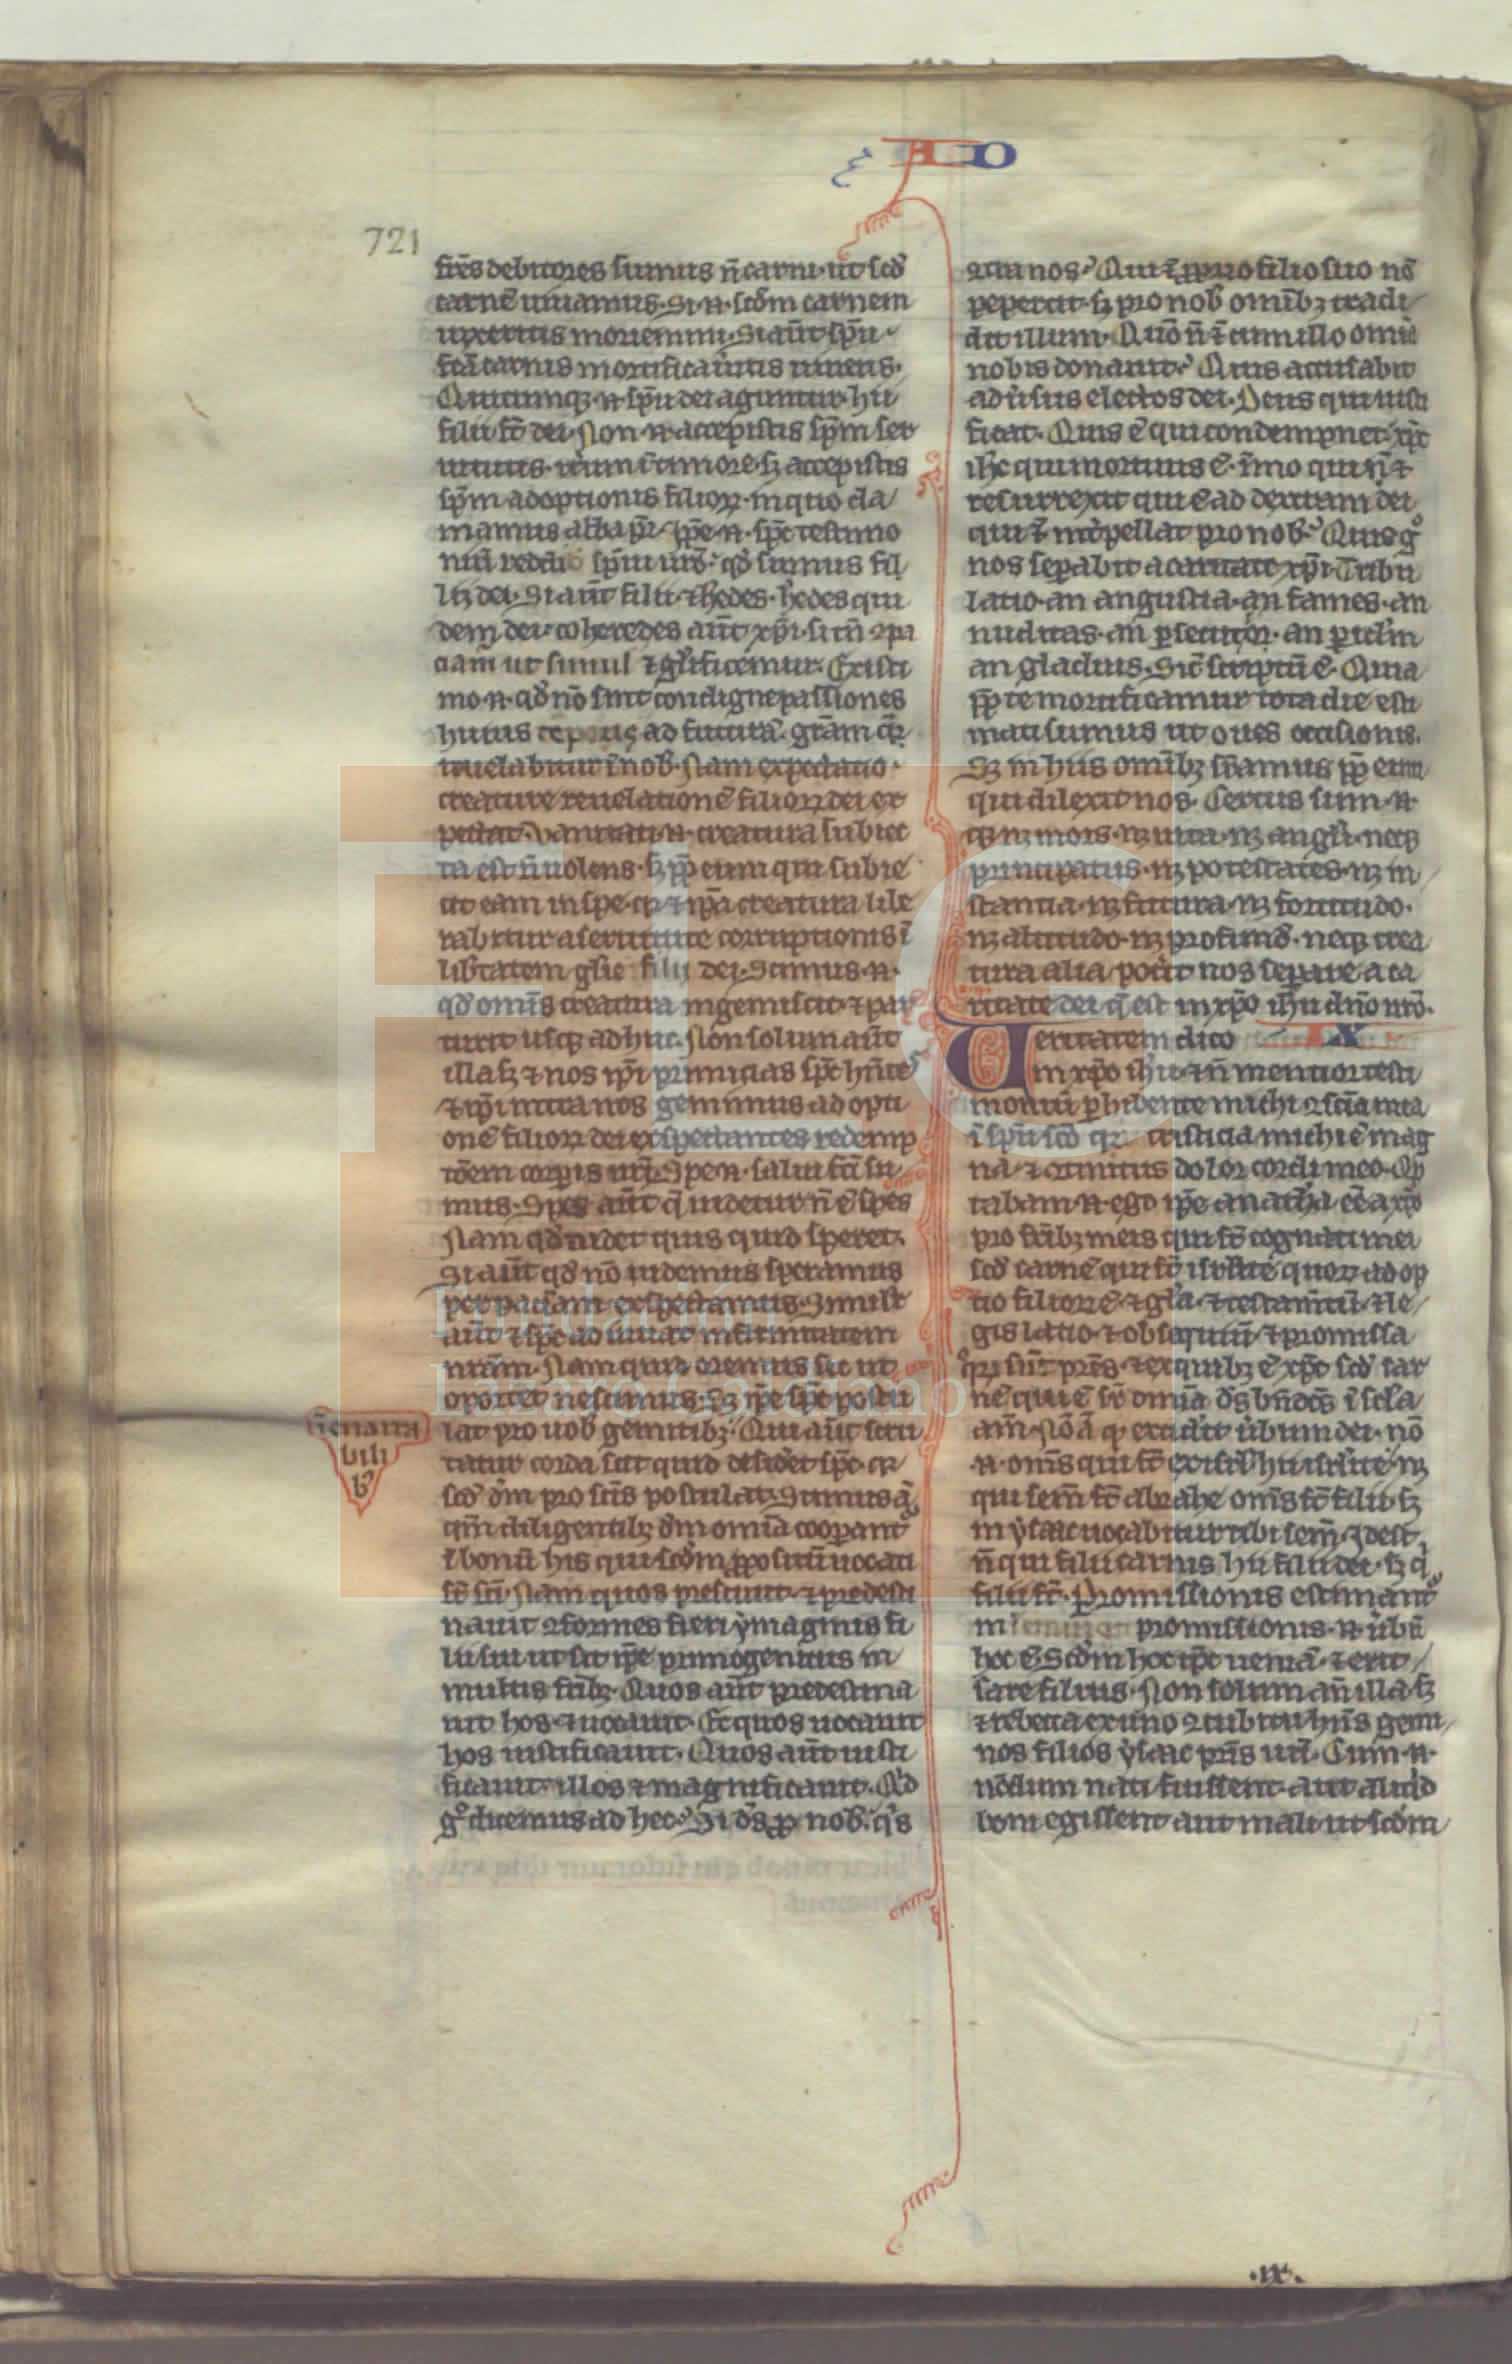 AD
721
fr̄es debitores sumus n̄ carni· ut scd̄
carnē uiuamus· Si n̄· scd̄m carnem
uixeritis moriemini· Si aūt sp̄u
fc̄a carnis mortificau̇itis uiuetis·
Quicumqꝫ n̄· sp̄u dei aguntur· hii
filii st̄ dei· Non n̄· accepistis sp̄m ser
uitutis· it̄um ī timore· sꝫ accepistis
sp̄m adoptionis filioꝝ· in quo cla
mamus abba pr̄· Ip̄e n̄· sp̄c testimo
niū reddit sp̄ui ur̄o· qd̄ sumus fil
lii dei· Si aūt filii· ⁊ h̄edes· h̄edes qui
dem dei· coheredes aūt xp̄i· si tn̄ ꝯpa
ciam̄ ut simul ⁊ gl̄ificemur· Existi
mo n̄· qd̄ nō sunt condigne passiones
huius tēporis ad futurā gl̄am q̄
reuelabitur ī nob̄· Nam expectatio
creature reuelationē filioꝝ dei ex
pectat· Vanitati n̄· creatura subiec
ta est n̄ uolens· sꝫ ꝓp̄ eum qui subie
cit eam in spe· qꝛ ⁊ ip̄a creatura libe
rabitur a seruitute corruptionis ī
lib̄tatem gl̄ie filii dei· Scimus n̄·
qd̄ om̄is creatura ingemiscit· ⁊ par
turit usqꝫ adhuc· Non solum aūt
illa sꝫ ⁊ nos ip̄i primicias sp̄c hn̄tes
⁊ ip̄i intra nos gemimus adopti
onē filioꝝ dei exspectantes redemp
tōem corpis nr̄i· Spe n̄· salui fc̄i su
mus· Spes aūt q̄ uidetur n̄ ē spes
Nam qd̄ uidet quis quid sperat·
Si aūt qd̄ nō uidemus speramus
per pac̄iam exspectamus· Similit̄
aūt ⁊ sp̄c adiuuat infirmitatem
nr̄am· Nam quid oremus sic ut
oportet nescimus· Sꝫ ip̄e sp̄c postu
lat pro nob̄ gemitibꝫ· Qui aūt scru
n̄ enarra
bili
bꝫ
tatur corda scit quid desid̄et sp̄c· qꝛ
scd̄ dm̄ pro sc̄is postulat· Scimus q̄
qm̄ diligentibꝫ dm̄ omīa coop̄ant̄
ī bonū his qui scd̄m ꝓpositū uocati
st̄ sc̄i· Nam quos presciuit· ⁊ predesti
nauit ꝯformes fieri ymaginis fi
lii sui ut sit ip̄e primogenitus in
multis fr̄ibꝫ· Quos aūt predestina
uit hos· ⁊ uocauit· Et quos uocauit
hos iustificauit· Quos aūt iusti
ficauit· illos ⁊ magnificauit· Qid
gͦ dicemus ad hec? Si ds̄ ꝓ nob̄· q̇s
ꝯtra nos? Qui ⁊ ꝓprio filio suo nō
pepercit· sꝫ pro nob̄ omībꝫ tradi
dit illum· Quō n̄ ⁊ cum illo omīa
nobis donauit? Quis accusabit
adu̇sus electos dei· Deus qui iusti
ficat· Quis ē qui condempnet· xp̄c
ih̄c qui mortuus ē· īmo qui ⁊
resurrexit qui ē ad dextram dei
qui ⁊ int̄pellat pro nob̄? Quis gͦ
nos sep̄abit a caritate xp̄i· Tribu
latio· an angustia· an fames· an
nuditas· an ꝑsecutio· an ꝑiculm
an gladius· Sic̄ scriptū ē· Quia
ꝓp̄ te mortificamur tota die esti
mati sumus ut oues occisionis·
Sꝫ in hiis omībꝫ sup̄amus ꝓp̄ eum
qui dilexit nos· Certus sum n̄·
qꝛ nꝫ mors· nꝫ uita· nꝫ angl̄i· neqꝫ
principatus· nꝫ potestates· nꝫ in
stantia· nꝫ futura· nꝫ fortitudo·
nꝫ altitudo· nꝫ profund̄· neqꝫ crea
tura alia pot̄it nos sep̄are a ca
ritate dei q̄ est in xp̄o ih̄u dn̄o nr̄o·
Ueritatem dico IX
in xp̄o ih̄u· ⁊ n̄ mentior testi
moniū ꝑhibente michi ꝯsciā mea
ī sp̄u sc̄o qꝛ tristicia michi ē mag
nā· ⁊ ꝯtinuus dolor cordi meo· Op
tabam n̄· ego ip̄e anathēa eē a xp̄o
pro fr̄ibꝫ meis qui st̄ cognati mei
scd̄ carnē qui st̄ isrl̄ite quoꝝ adop
tio filioꝝ ē· ⁊ gl̄a· ⁊ testamītū· ⁊ le
gis latio· ⁊ obsequiū· ⁊ promissa
qꝛ sūt pr̄es· ⁊ ex quibꝫ ē xp̄c scd̄ car
nē qui ē sr̄ omīa ds̄ bn̄dcs̄ ī scl̄a
am̄· Nō ā q exciderit u̇bum dei· nō
n̄· om̄s qui st̄ ex isrl̄ hii isrl̄ite· nꝫ
qui sem̄ st̄ abrahe om̄s st̄ filii· sꝫ
in ysaac uocabitur tibi sem̄· Id est
n̄ qui filii carnis hii filii dei· sꝫ q̇
filii st̄· Promissionis estimant̄
in semine promissionis· n̄ u̇bū
hoc ē· Scd̄m hoc tp̄c ueniā· ⁊ erit
sare filius· Non solum aūt illa sꝫ
⁊ rebecca ex uno ꝯcubitu hn̄s gemi
nos filios ysaac pr̄is nr̄i· Cum n̄·
nōdum nati fuissent· aut aliq̇d
boni egissent aut mali ut scd̄m
·ix·